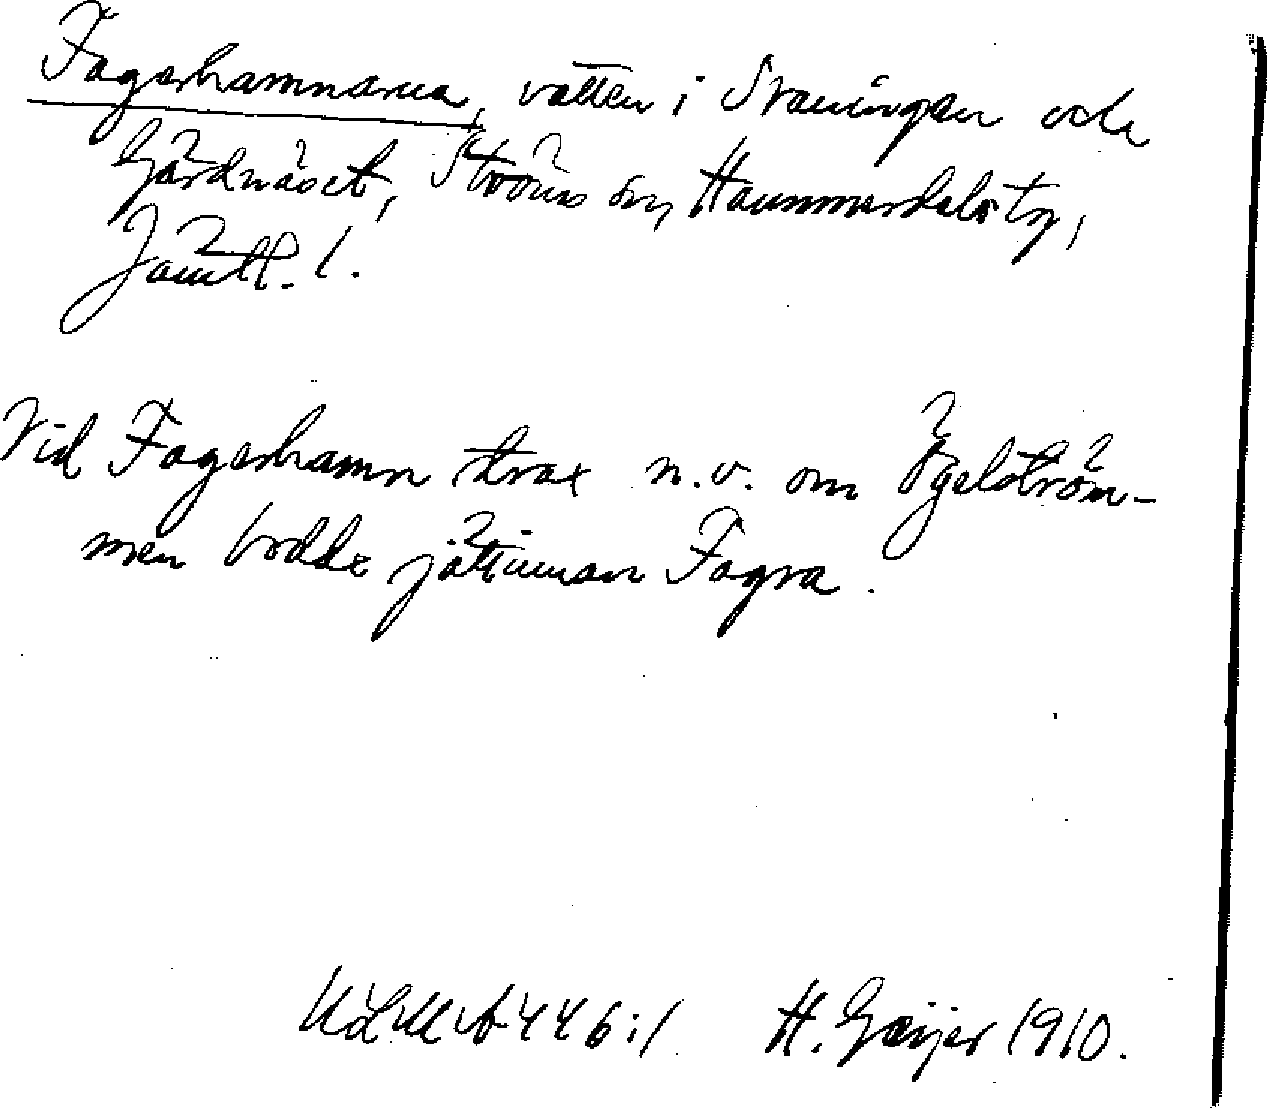 Fagerhamnarna, vatten i Svaningen och
Gärdnäset, Ströms sn, Hammerdals tg,
Jämtl. l.
Vid Fagerhamn strax n.v. om Ögelström-
men bodde jättinnan Fagra.
ULMA 446:1 H. Geijer 1910.